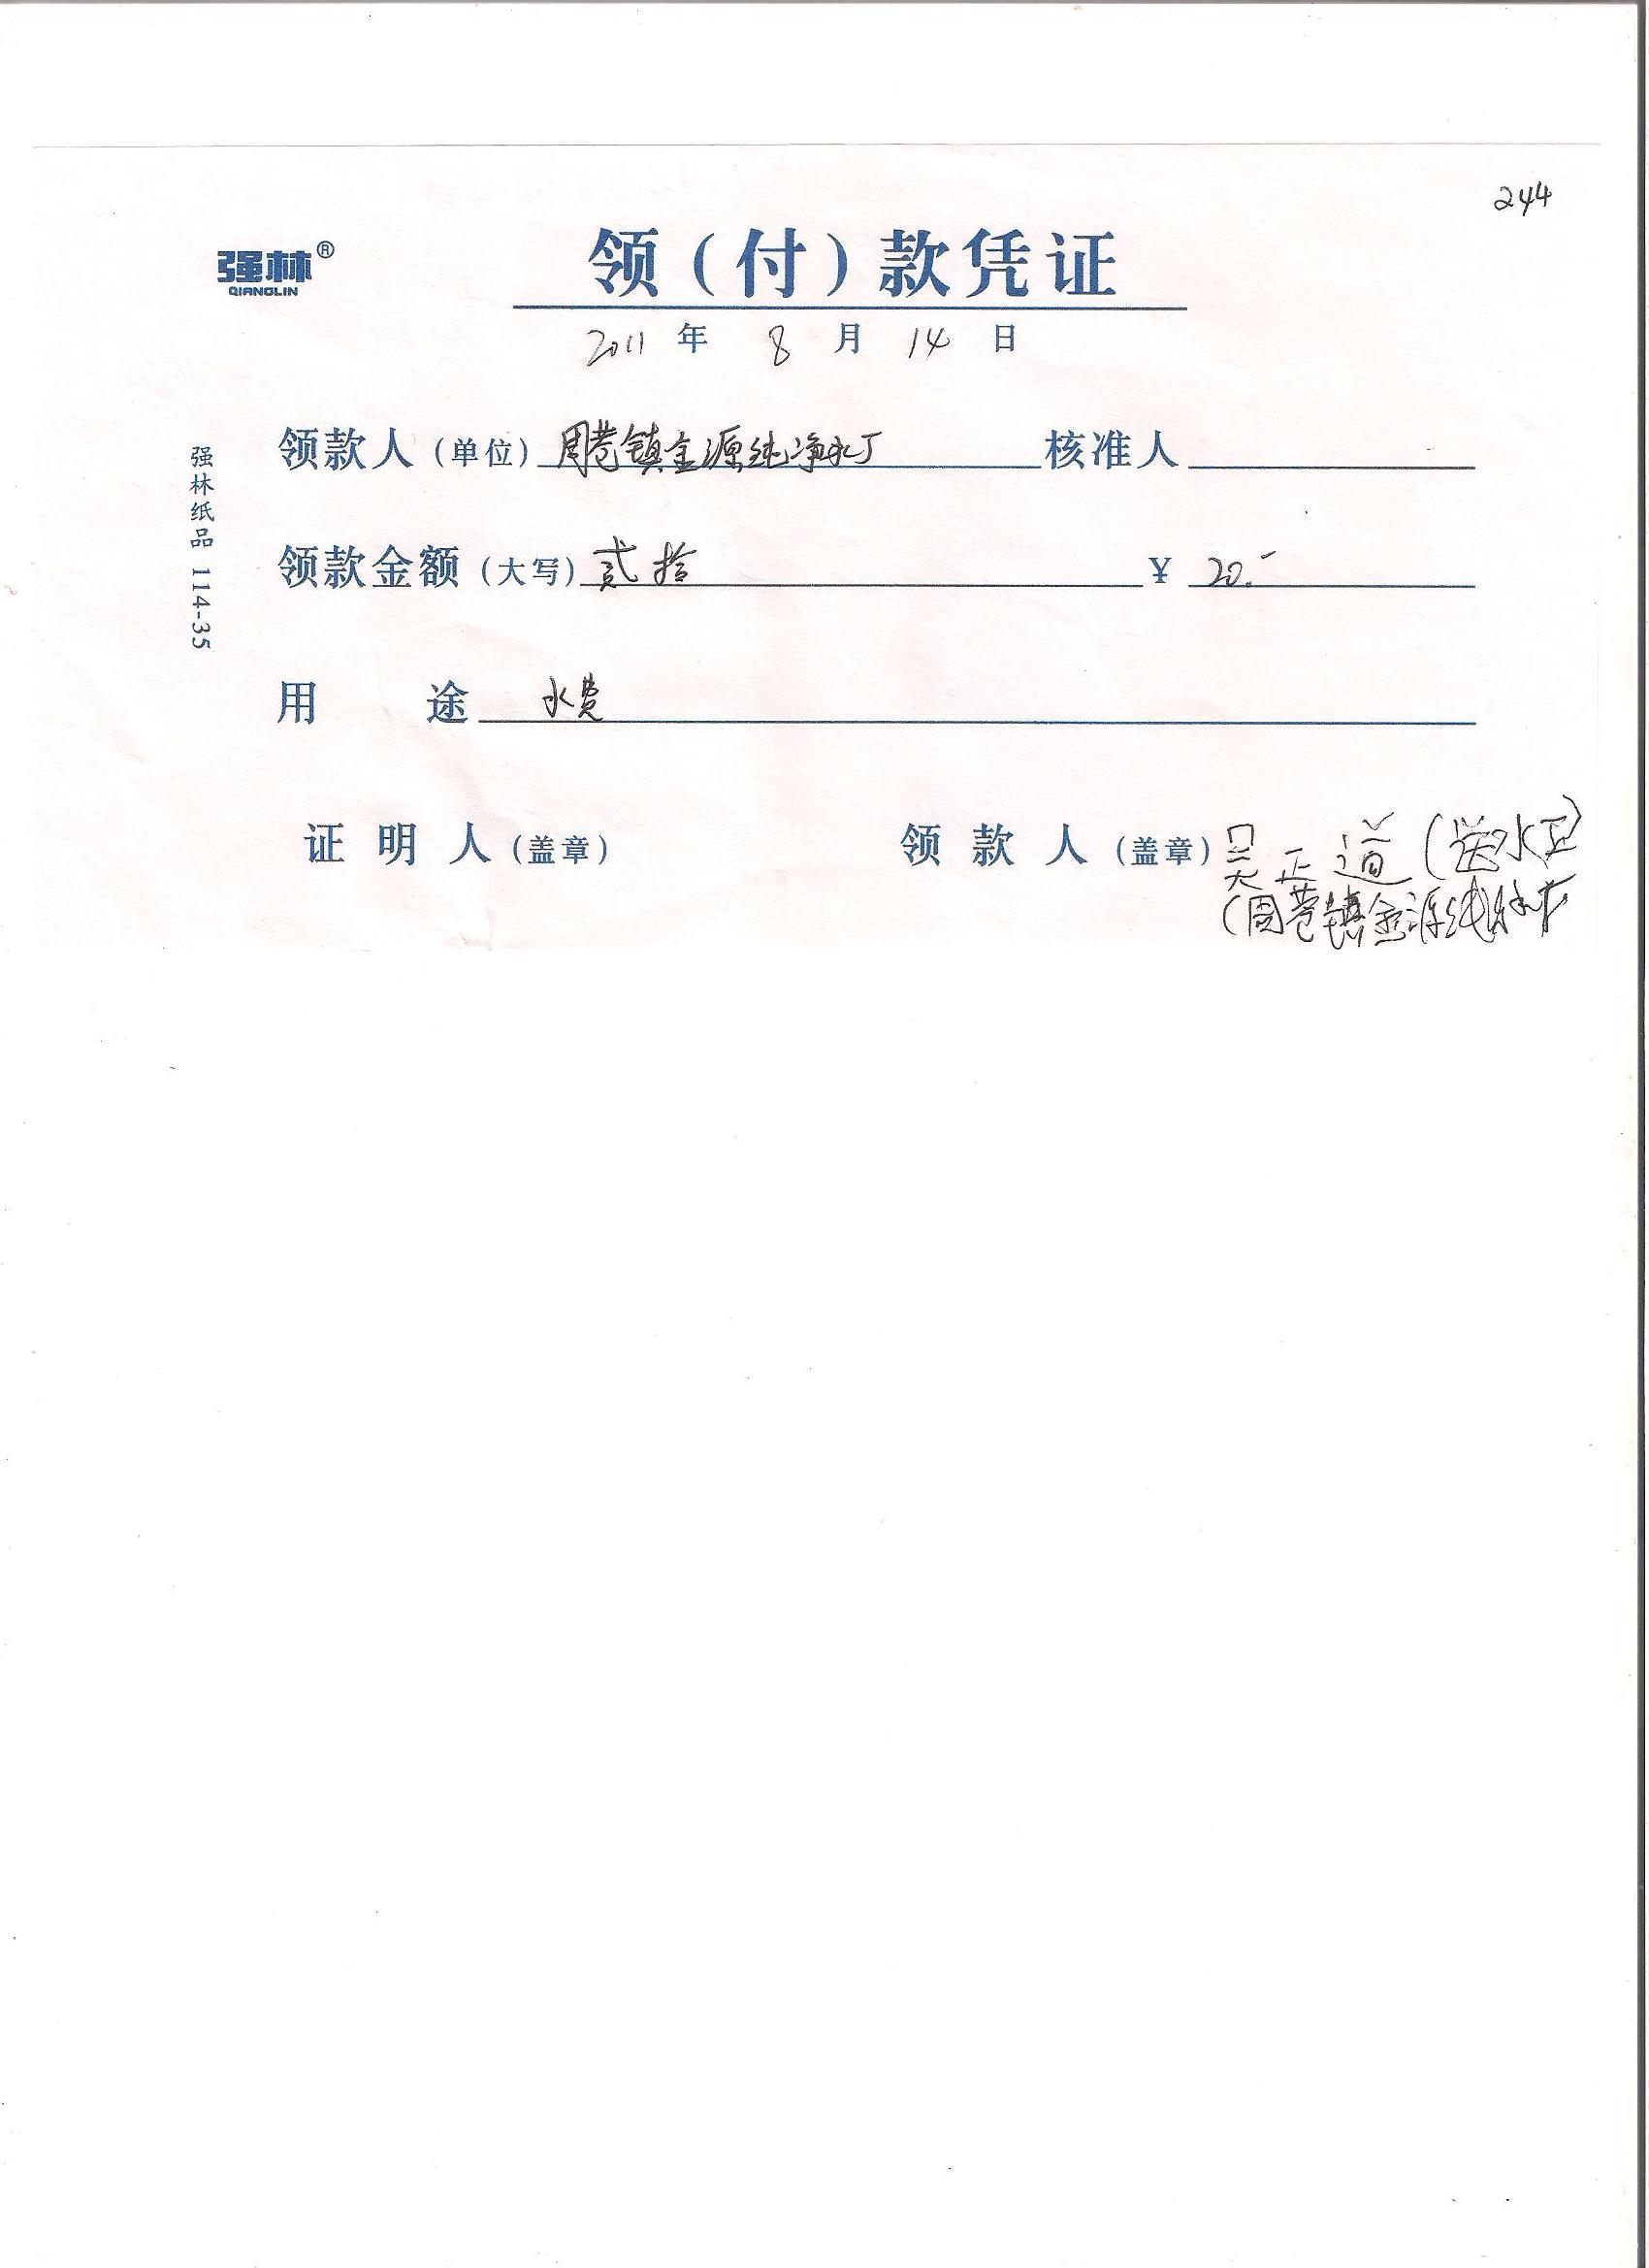 244
强林®
QIANGLIN
领（付）款凭证
2011 年 8 月 14 日
领款人（单位） 周巷镇金源纯净水厂 核准人
领款金额（大写） 贰拾 ¥ 20.-
用 途 水费
证明人（盖章） 领款人（盖章） 吴正道（送水工）
（周巷镇金源纯净水厂
强林纸品 114-35